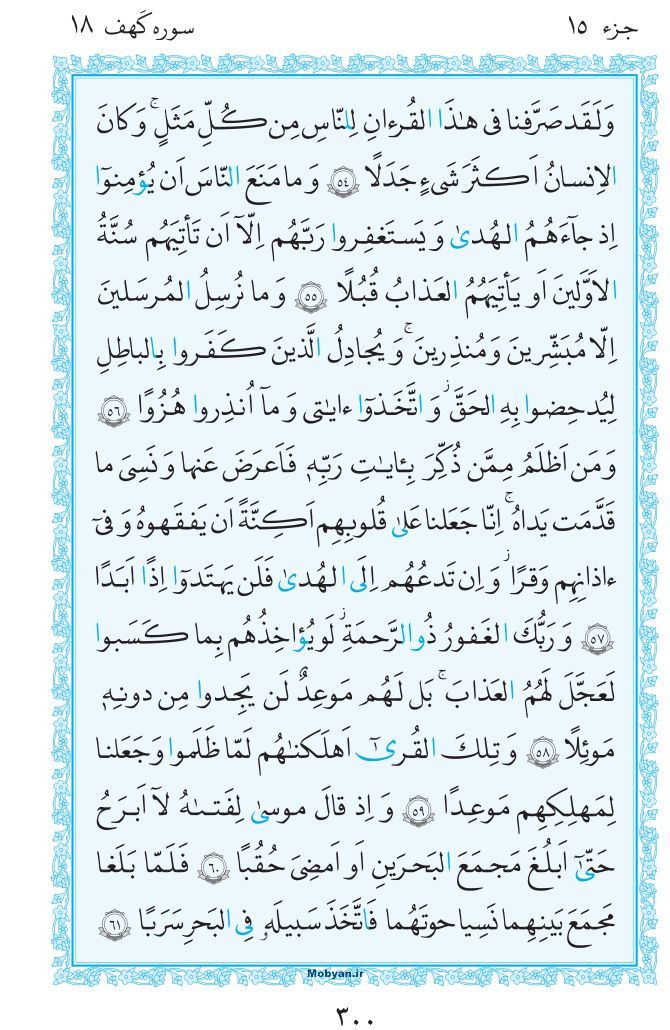 جزء ۱۵
سوره کَهف ۱۸
وَلَقَد صَرَّفنا فی هٰذَا القُرءانِ لِلنّاسِ مِن کُلِّ مَثَلٍ ۚ وَ کانَ
الاِنسانُ اَکثَرَ شَیءٍ جَدَلًا ﴿٥٤﴾ وَ ما مَنَعَ النّاسَ اَن یُؤمِنوٓا
اِذ جآءَهُمُ الهُدیٰ وَ یَستَغفِروا رَبَّهُم اِلّآ اَن تَأتِیَهُم سُنَّةُ
الاَوَّلینَ اَو یَأتِیَهُمُ العَذابُ قُبُلًا ﴿٥٥﴾ وَ ما نُرسِلُ المُرسَلینَ
اِلّا مُبَشِّرینَ وَ مُنذِرینَ ۚ وَ یُجادِلُ الَّذینَ کَفَروا بِالباطِلِ
لِیُدحِضوا بِهِ الحَقَّ ۖ وَ اتَّخَذوٓا ءایٰتی وَ مآ اُنذِروا هُزُوًا ﴿٥٦﴾
وَ مَن اَظلَمُ مِمَّن ذُکِّرَ بِـٔایٰتِ رَبِّهٖ فَاَعرَضَ عَنها وَ نَسِیَ ما
قَدَّمَت یَداهُ ۚ اِنّا جَعَلنا عَلیٰ قُلوبِهِم اَکِنَّةً اَن یَفقَهوهُ وَ فیٓ
ءاذانِهِم وَقرًا ۖ وَ اِن تَدعُهُم اِلَی الهُدیٰ فَلَن یَهتَدوٓا اِذًا اَبَدًا
﴿٥٧﴾ وَ رَبُّکَ الغَفورُ ذُو الرَّحمَةِ ۖ لَو یُؤاخِذُهُم بِما کَسَبوا
لَعَجَّلَ لَهُمُ العَذابَ ۚ بَل لَهُم مَوعِدٌ لَن یَجِدوا مِن دونِهٖ
مَوئِلًا ﴿٥٨﴾ وَ تِلکَ القُریٰٓ اَهلَکنٰهُم لَمّا ظَلَموا وَ جَعَلنا
لِمَهلِکِهِم مَوعِدًا ﴿٥٩﴾ وَ اِذ قالَ موسیٰ لِفَتىٰهُ لآ اَبرَحُ
حَتّیٰٓ اَبلُغَ مَجمَعَ البَحرَینِ اَو اَمضِیَ حُقُبًا ﴿٦٠﴾ فَلَمّا بَلَغا
مَجمَعَ بَینِهِما نَسِیا حوتَهُما فَاتَّخَذَ سَبیلَهٗ فِی البَحرِ سَرَبًا ﴿٦١﴾
Mobyan.ir
۳۰۰